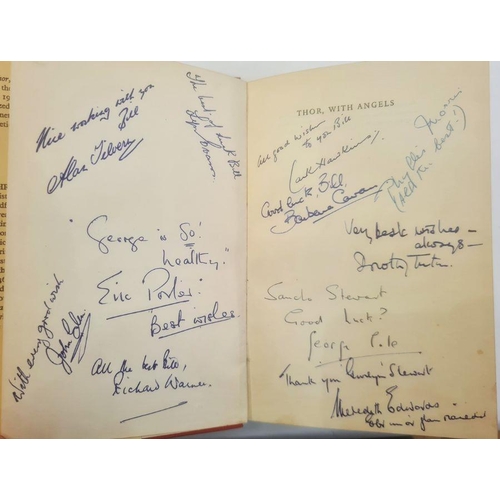 Nice working with you
Bill
Alan Tilvern
The best of luck Bill
"George is so
healthy"
Eric Porter
Best wishes
With every good wish
John
All the best Bill,
Richard Warner
THOR, WITH ANGELS
All good wishes
to you Bill
Hawkins
Good luck Bill
Barbara
Phyllis Morris
(All the best!)
Very best wishes –
always –
Dorothy Tutin.
Sancho Stewart
Good Luck?
George
Thank you Stewart
Meredith Edwards